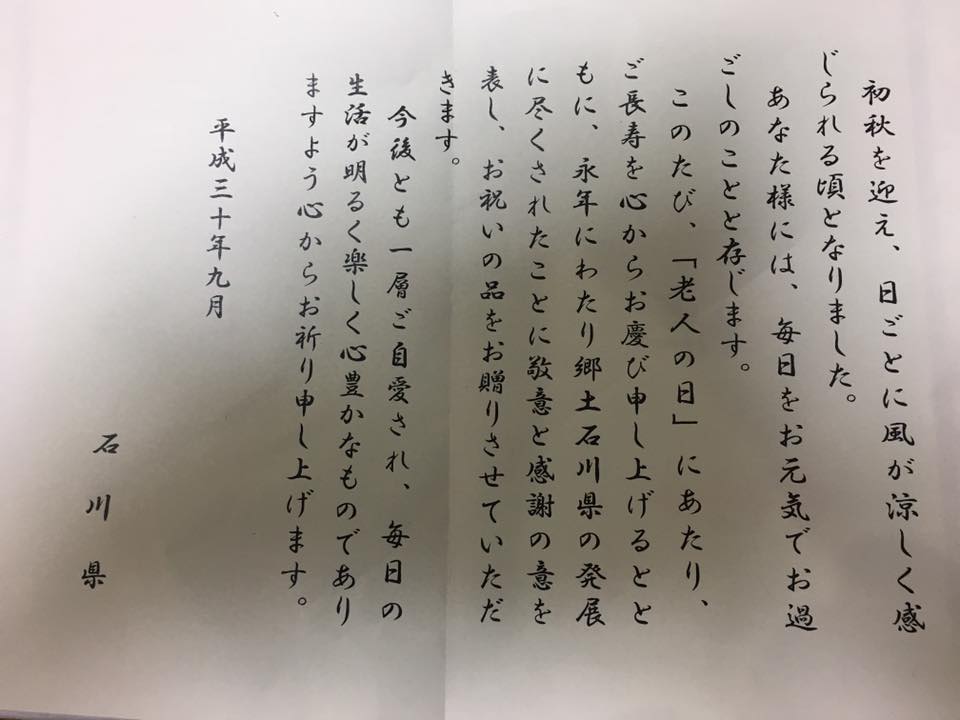 初秋を迎え、日ごとに風が涼しく感
じられる頃となりました。
あなた様には、毎日をお元気でお過
ごしのことと存じます。
このたび、「老人の日」にあたり、
ご長寿を心からお慶び申し上げるとと
もに、永年にわたり郷土石川県の発展
に尽くされたことに敬意と感謝の意を
表し、お祝いの品をお贈りさせていただ
きます。
今後とも一層ご自愛され、毎日の
生活が明るく楽しく心豊かなものであり
ますよう心からお祈り申し上げます。
平成三十年九月
石川県